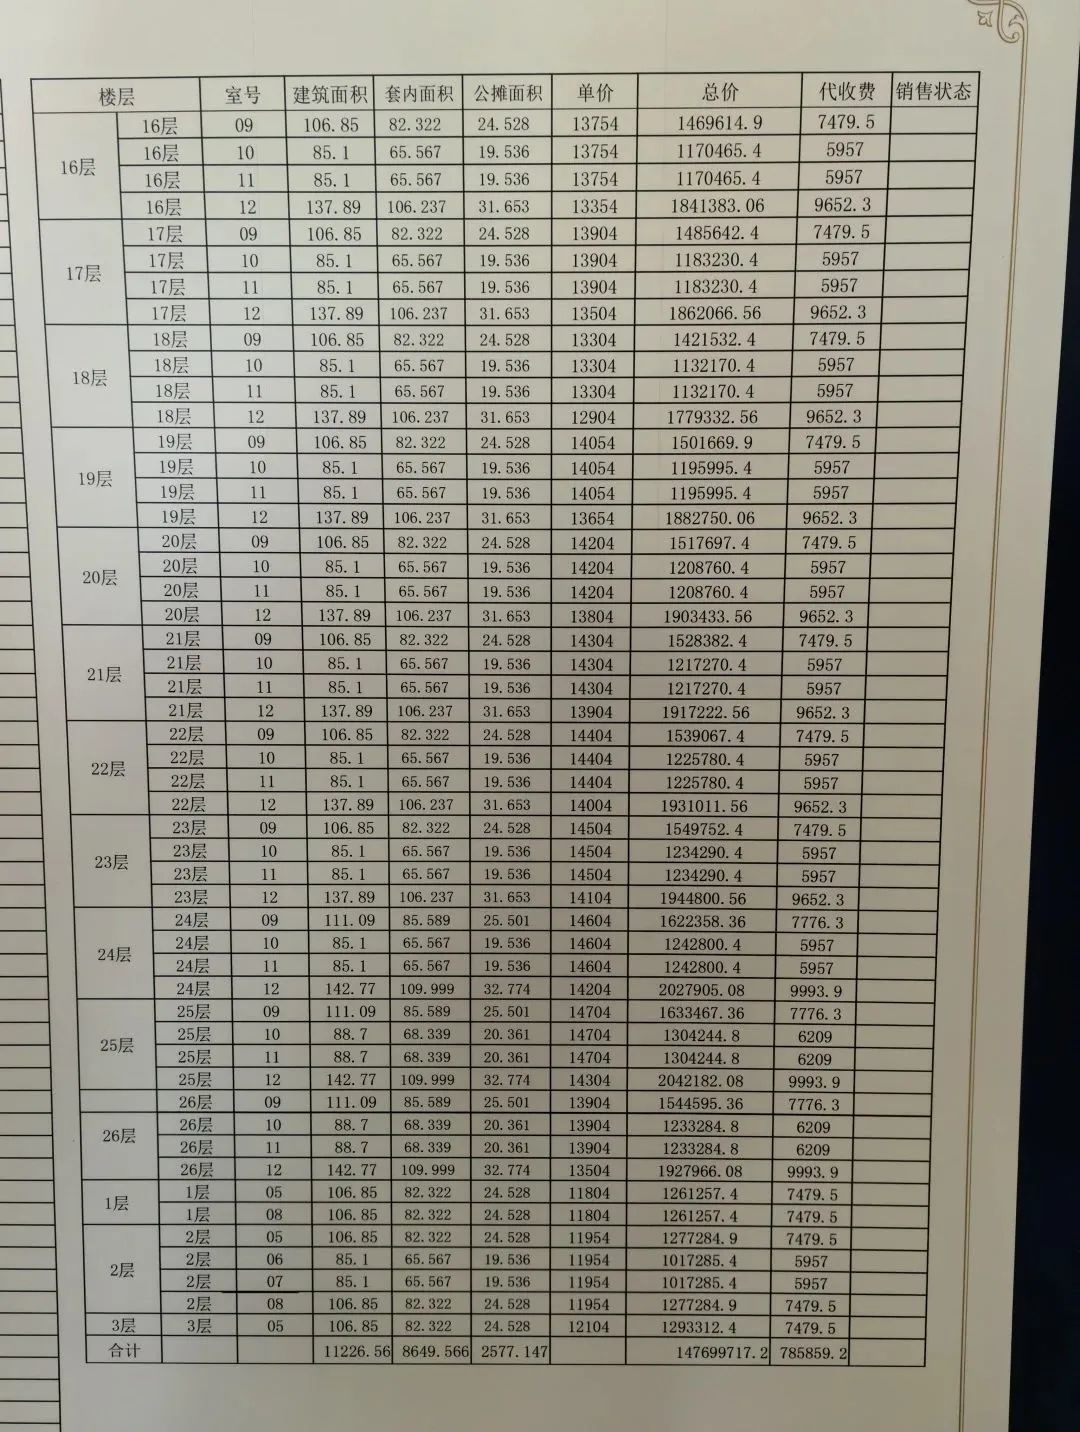 楼层 室号 建筑面积 套内面积 公摊面积 单价 总价 代收费 销售状态
16层 16层 09 106.85 82.322 24.528 13754 1469614.9 7479.5
16层 10 85.1 65.567 19.536 13754 1170465.4 5957
16层 11 85.1 65.567 19.536 13754 1170465.4 5957
16层 12 137.89 106.237 31.653 13354 1841383.06 9652.3
17层 17层 09 106.85 82.322 24.528 13904 1485642.4 7479.5
17层 10 85.1 65.567 19.536 13904 1183230.4 5957
17层 11 85.1 65.567 19.536 13904 1183230.4 5957
17层 12 137.89 106.237 31.653 13504 1862066.56 9652.3
18层 18层 09 106.85 82.322 24.528 13304 1421532.4 7479.5
18层 10 85.1 65.567 19.536 13304 1132170.4 5957
18层 11 85.1 65.567 19.536 13304 1132170.4 5957
18层 12 137.89 106.237 31.653 12904 1779332.56 9652.3
19层 19层 09 106.85 82.322 24.528 14054 1501669.9 7479.5
19层 10 85.1 65.567 19.536 14054 1195995.4 5957
19层 11 85.1 65.567 19.536 14054 1195995.4 5957
19层 12 137.89 106.237 31.653 13654 1882750.06 9652.3
20层 20层 09 106.85 82.322 24.528 14204 1517697.4 7479.5
20层 10 85.1 65.567 19.536 14204 1208760.4 5957
20层 11 85.1 65.567 19.536 14204 1208760.4 5957
20层 12 137.89 106.237 31.653 13804 1903433.56 9652.3
21层 21层 09 106.85 82.322 24.528 14304 1528382.4 7479.5
21层 10 85.1 65.567 19.536 14304 1217270.4 5957
21层 11 85.1 65.567 19.536 14304 1217270.4 5957
21层 12 137.89 106.237 31.653 13904 1917222.56 9652.3
22层 22层 09 106.85 82.322 24.528 14404 1539067.4 7479.5
22层 10 85.1 65.567 19.536 14404 1225780.4 5957
22层 11 85.1 65.567 19.536 14404 1225780.4 5957
22层 12 137.89 106.237 31.653 14004 1931011.56 9652.3
23层 23层 09 106.85 82.322 24.528 14504 1549752.4 7479.5
23层 10 85.1 65.567 19.536 14504 1234290.4 5957
23层 11 85.1 65.567 19.536 14504 1234290.4 5957
23层 12 137.89 106.237 31.653 14104 1944800.56 9652.3
24层 24层 09 111.09 85.589 25.501 14604 1622358.36 7776.3
24层 10 85.1 65.567 19.536 14604 1242800.4 5957
24层 11 85.1 65.567 19.536 14604 1242800.4 5957
24层 12 142.77 109.999 32.774 14204 2027905.08 9993.9
25层 25层 09 111.09 85.589 25.501 14704 1633467.36 7776.3
25层 10 88.7 68.339 20.361 14704 1304244.8 6209
25层 11 88.7 68.339 20.361 14704 1304244.8 6209
25层 12 142.77 109.999 32.774 14304 2042182.08 9993.9
26层 26层 09 111.09 85.589 25.501 13904 1544595.36 7776.3
26层 10 88.7 68.339 20.361 13904 1233284.8 6209
26层 11 88.7 68.339 20.361 13904 1233284.8 6209
26层 12 142.77 109.999 32.774 13504 1927966.08 9993.9
1层 1层 05 106.85 82.322 24.528 11804 1261257.4 7479.5
1层 08 106.85 82.322 24.528 11804 1261257.4 7479.5
2层 2层 05 106.85 82.322 24.528 11954 1277284.9 7479.5
2层 06 85.1 65.567 19.536 11954 1017285.4 5957
2层 07 85.1 65.567 19.536 11954 1017285.4 5957
2层 08 106.85 82.322 24.528 11954 1277284.9 7479.5
3层 3层 05 106.85 82.322 24.528 12104 1293312.4 7479.5
合计 11226.56 8649.566 2577.147 147699717.2 785859.2